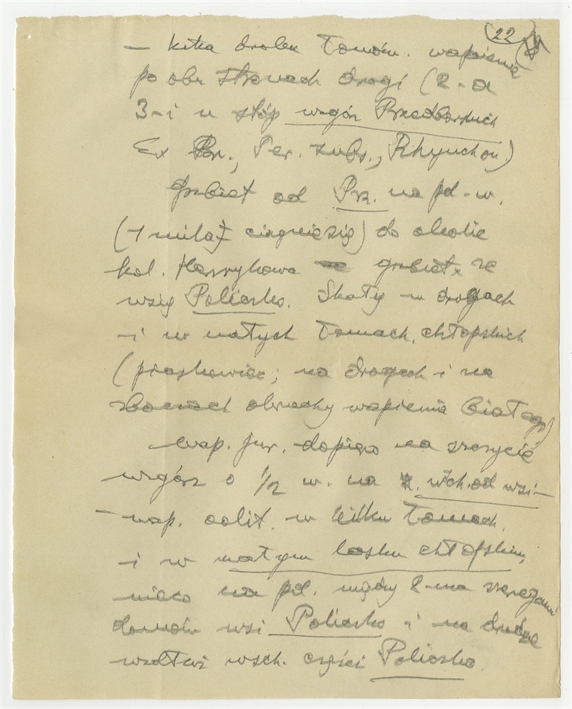 (22)
– kilka drobn. łomów. wapienia
po obu stronach drogi (2-a
3-i u stóp wzgórz Przedborskich
Ex Ter. subs., Rhynchon)
Grzbiet od Prz. na pd-w.
(1 mila ciągnie się) do okolic
kol. Henrykowa grzbiet ze
wsią Policzko. Skały w drogach
i w małych łomach chłopskich
(piaskowiec; na drogach i na
zboczach okruchy wapienia białego)
wap. jur. dopiero na szczycie
wzgórz o 1/2 w. na wsch. od wsi –
– wap. oolit. w kilku łomach
i w małym lasku chłopskim,
nieco na pd. między 2-ma szeregami
domów wsi Policzko i na drodze
wzdłuż wsch. części Policzka.